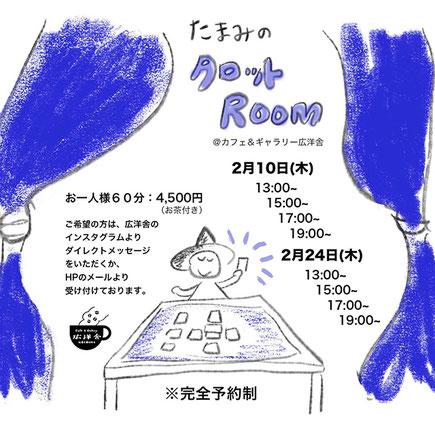 たまみの
タロット
ROOM
@カフェ&ギャラリー広洋舎
2月10日(木)
13:00~
15:00~
17:00~
19:00~
2月24日(木)
13:00~
15:00~
17:00~
19:00~
お一人様６０分：4,500円
(お茶付き)
ご希望の方は、広洋舎の
インスタグラムより
ダイレクトメッセージ
をいただくか、
HPのメールより
受け付けております。
Cafe & Gallery
広洋舎
※完全予約制